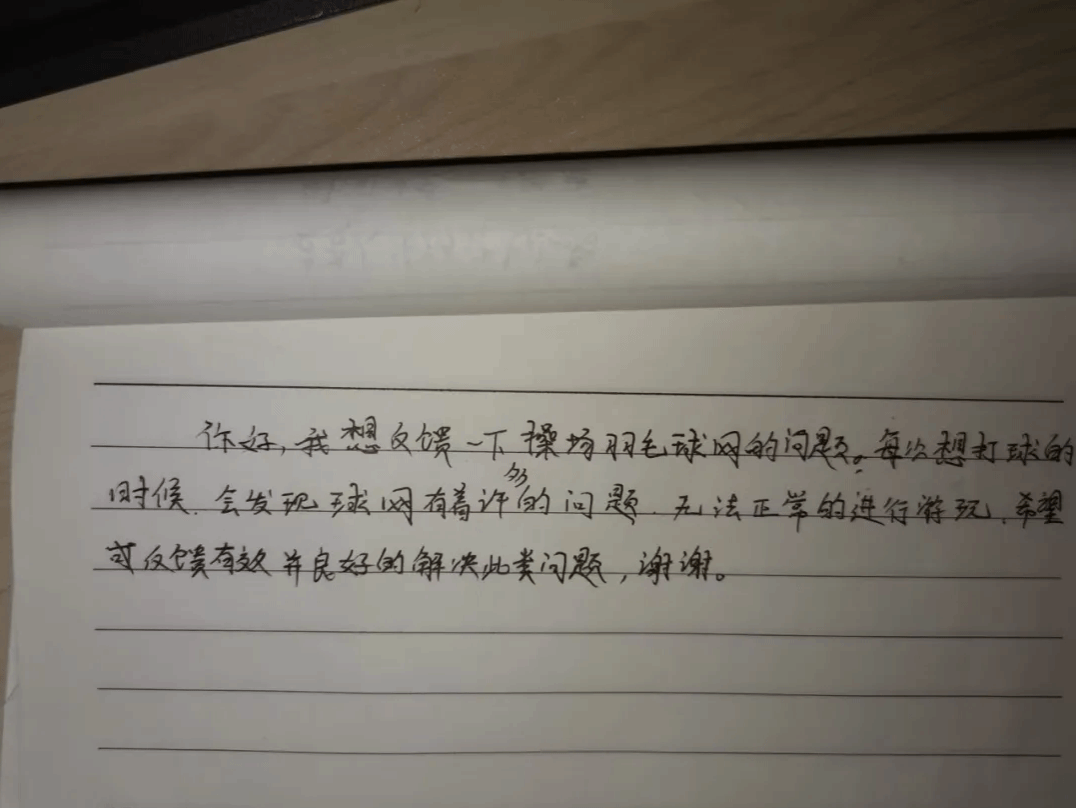 你好，我想反馈一下操场羽毛球网的问题。每次想打球的
时候，会发现球网有着许多的问题，无法正常的进行游玩，希望
可反馈有效并良好的解决此类问题，谢谢。